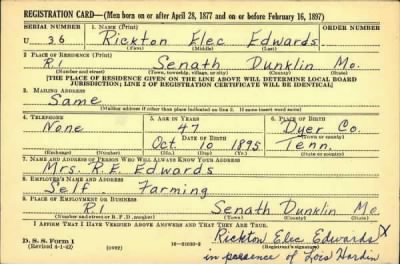 REGISTRATION CARD—(Men born on or after April 28, 1877 and on or before February 16, 1897)
SERIAL NUMBER 1. NAME (Print) ORDER NUMBER
U 36 Rickton Elec Edwards
(First) (Middle) (Last)
2. PLACE OF RESIDENCE (Print)
R.1 Senath Dunklin Mo.
(Number and street) (Town, township, village, or city) (County) (State)
[THE PLACE OF RESIDENCE GIVEN ON THE LINE ABOVE WILL DETERMINE LOCAL BOARD
JURISDICTION; LINE 2 OF REGISTRATION CERTIFICATE WILL BE IDENTICAL]
3. MAILING ADDRESS
Same
[Mailing address if other than place indicated on line 2. If same insert word same]
4. TELEPHONE 5. AGE IN YEARS 6. PLACE OF BIRTH
None 47 Dyer Co.
DATE OF BIRTH (Town or county)
Oct 10 1895 Tenn.
(Exchange) (Number) (Mo.) (Day) (Yr.) (State or country)
7. NAME AND ADDRESS OF PERSON WHO WILL ALWAYS KNOW YOUR ADDRESS
Mrs. R.E. Edwards
8. EMPLOYER'S NAME AND ADDRESS
Self. Farming
9. PLACE OF EMPLOYMENT OR BUSINESS
R.1 Senath Dunklin Mo
(Number and street or R. F. D. number) (Town) (County) (State)
I AFFIRM THAT I HAVE VERIFIED ABOVE ANSWERS AND THAT THEY ARE TRUE.
Rickton Elec Edwards X
D. S. S. Form 1 (Registrant's signature)
(Revised 4-1-42) (over)
in presence of Lois Hardin